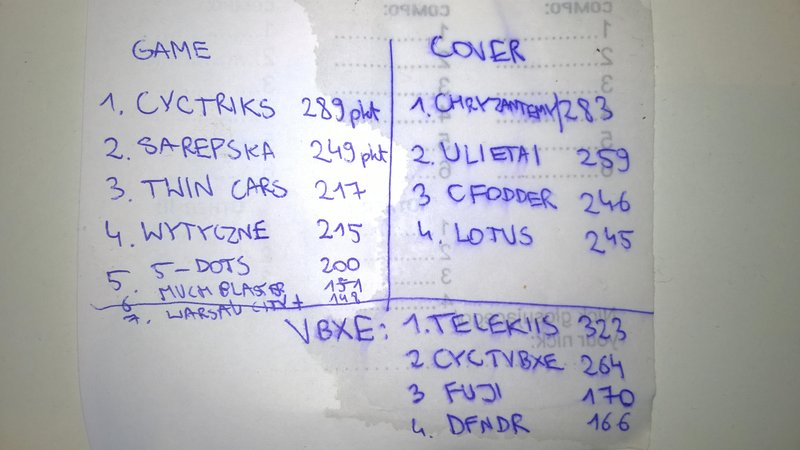 GAME
1. CYCTRIKS 289 pkt
2. SAREPSKA 249 pkt
3. TWIN CARS 217
4. WYTYCZNE 215
5. 5-DOTS 200
6. MUCH BLASTER 151
7. WARSAW CITY 148
COVER
1. CHRYZANTEMY/283
2. ULIETAI 259
3 CFODDER 246
4. LOTUS 245
VBXE:
1. TELEKIIS 323
2 CYCTVBXE 264
3 FUJI 170
4. DFNDR 166
COMPO:
1
2
3
COMPO:
1
2
3
your nick: